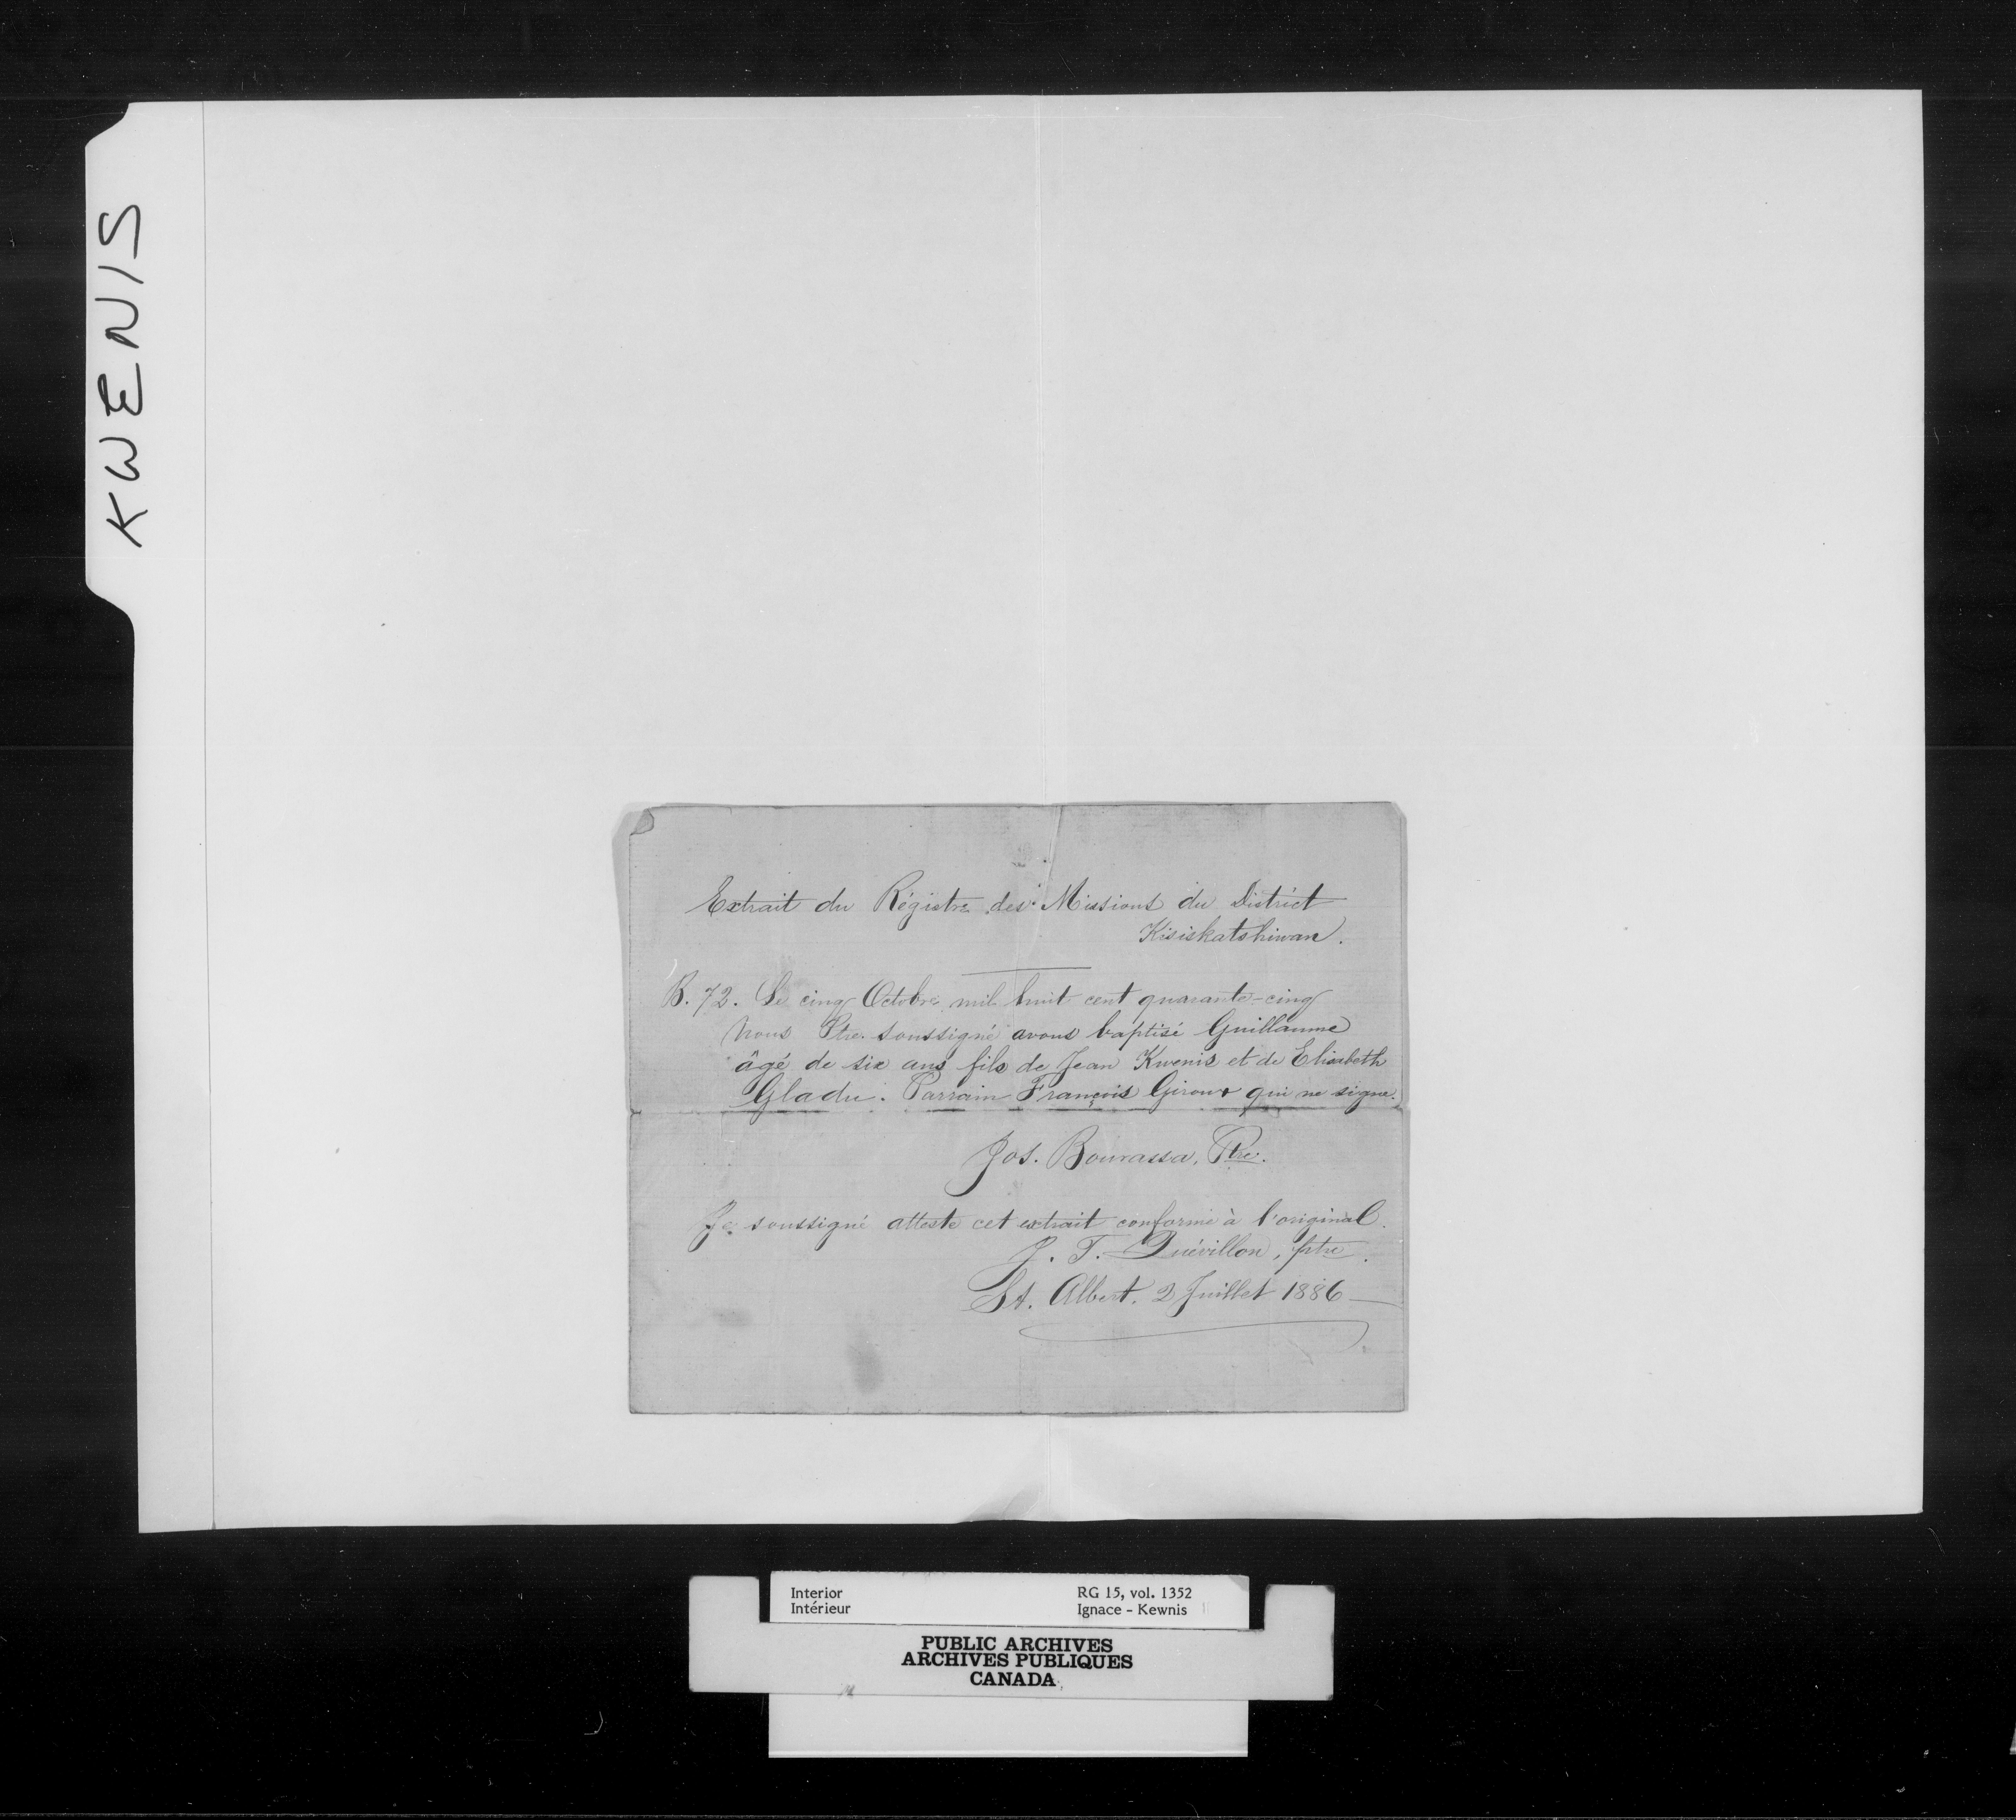 KWENIS
Extrait du Régistre des Missions du District
Kisiskatshiwan.
B. 72. Le cinq Octobre mil huit cent quarante-cinq
Nous Ptre. soussigné avons baptisé Guillaume
âgé de six ans fils de Jean Kwenis et de Elisabeth
Gladu. Parrain François Giroux qui ne signe.
Jos. Bourassa, Ptre.
Je soussigné atteste cet extrait conforme à l'original.
J. T. Quévillon, ptre.
St. Albert. 2 Juillet 1886
Interior RG 15, vol. 1352
Intérieur Ignace - Kewnis
PUBLIC ARCHIVES
ARCHIVES PUBLIQUES
CANADA